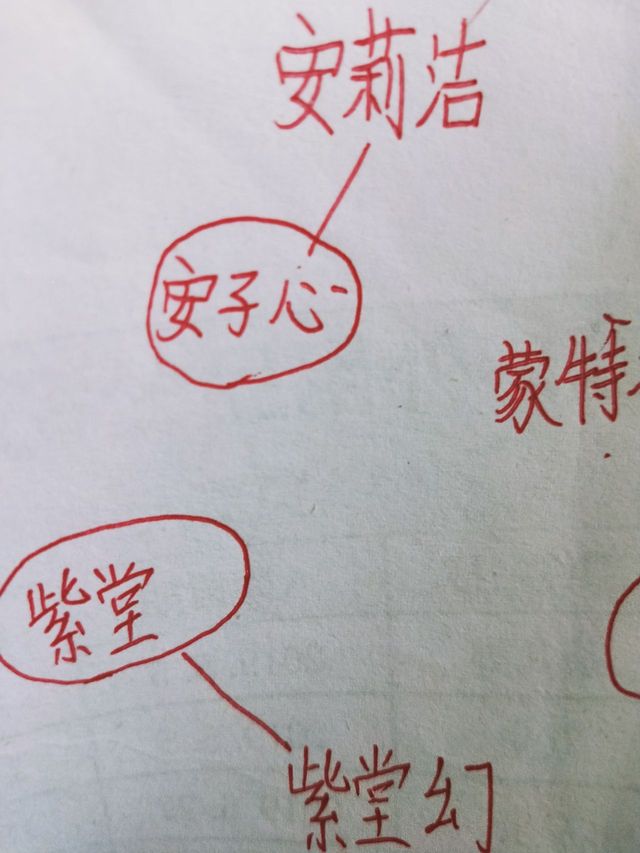 安莉洁
安子心
蒙特
紫堂
紫堂幻